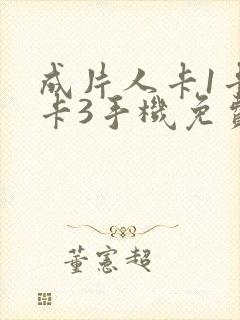 成片人卡1卡
卡3手機免費
董憲超